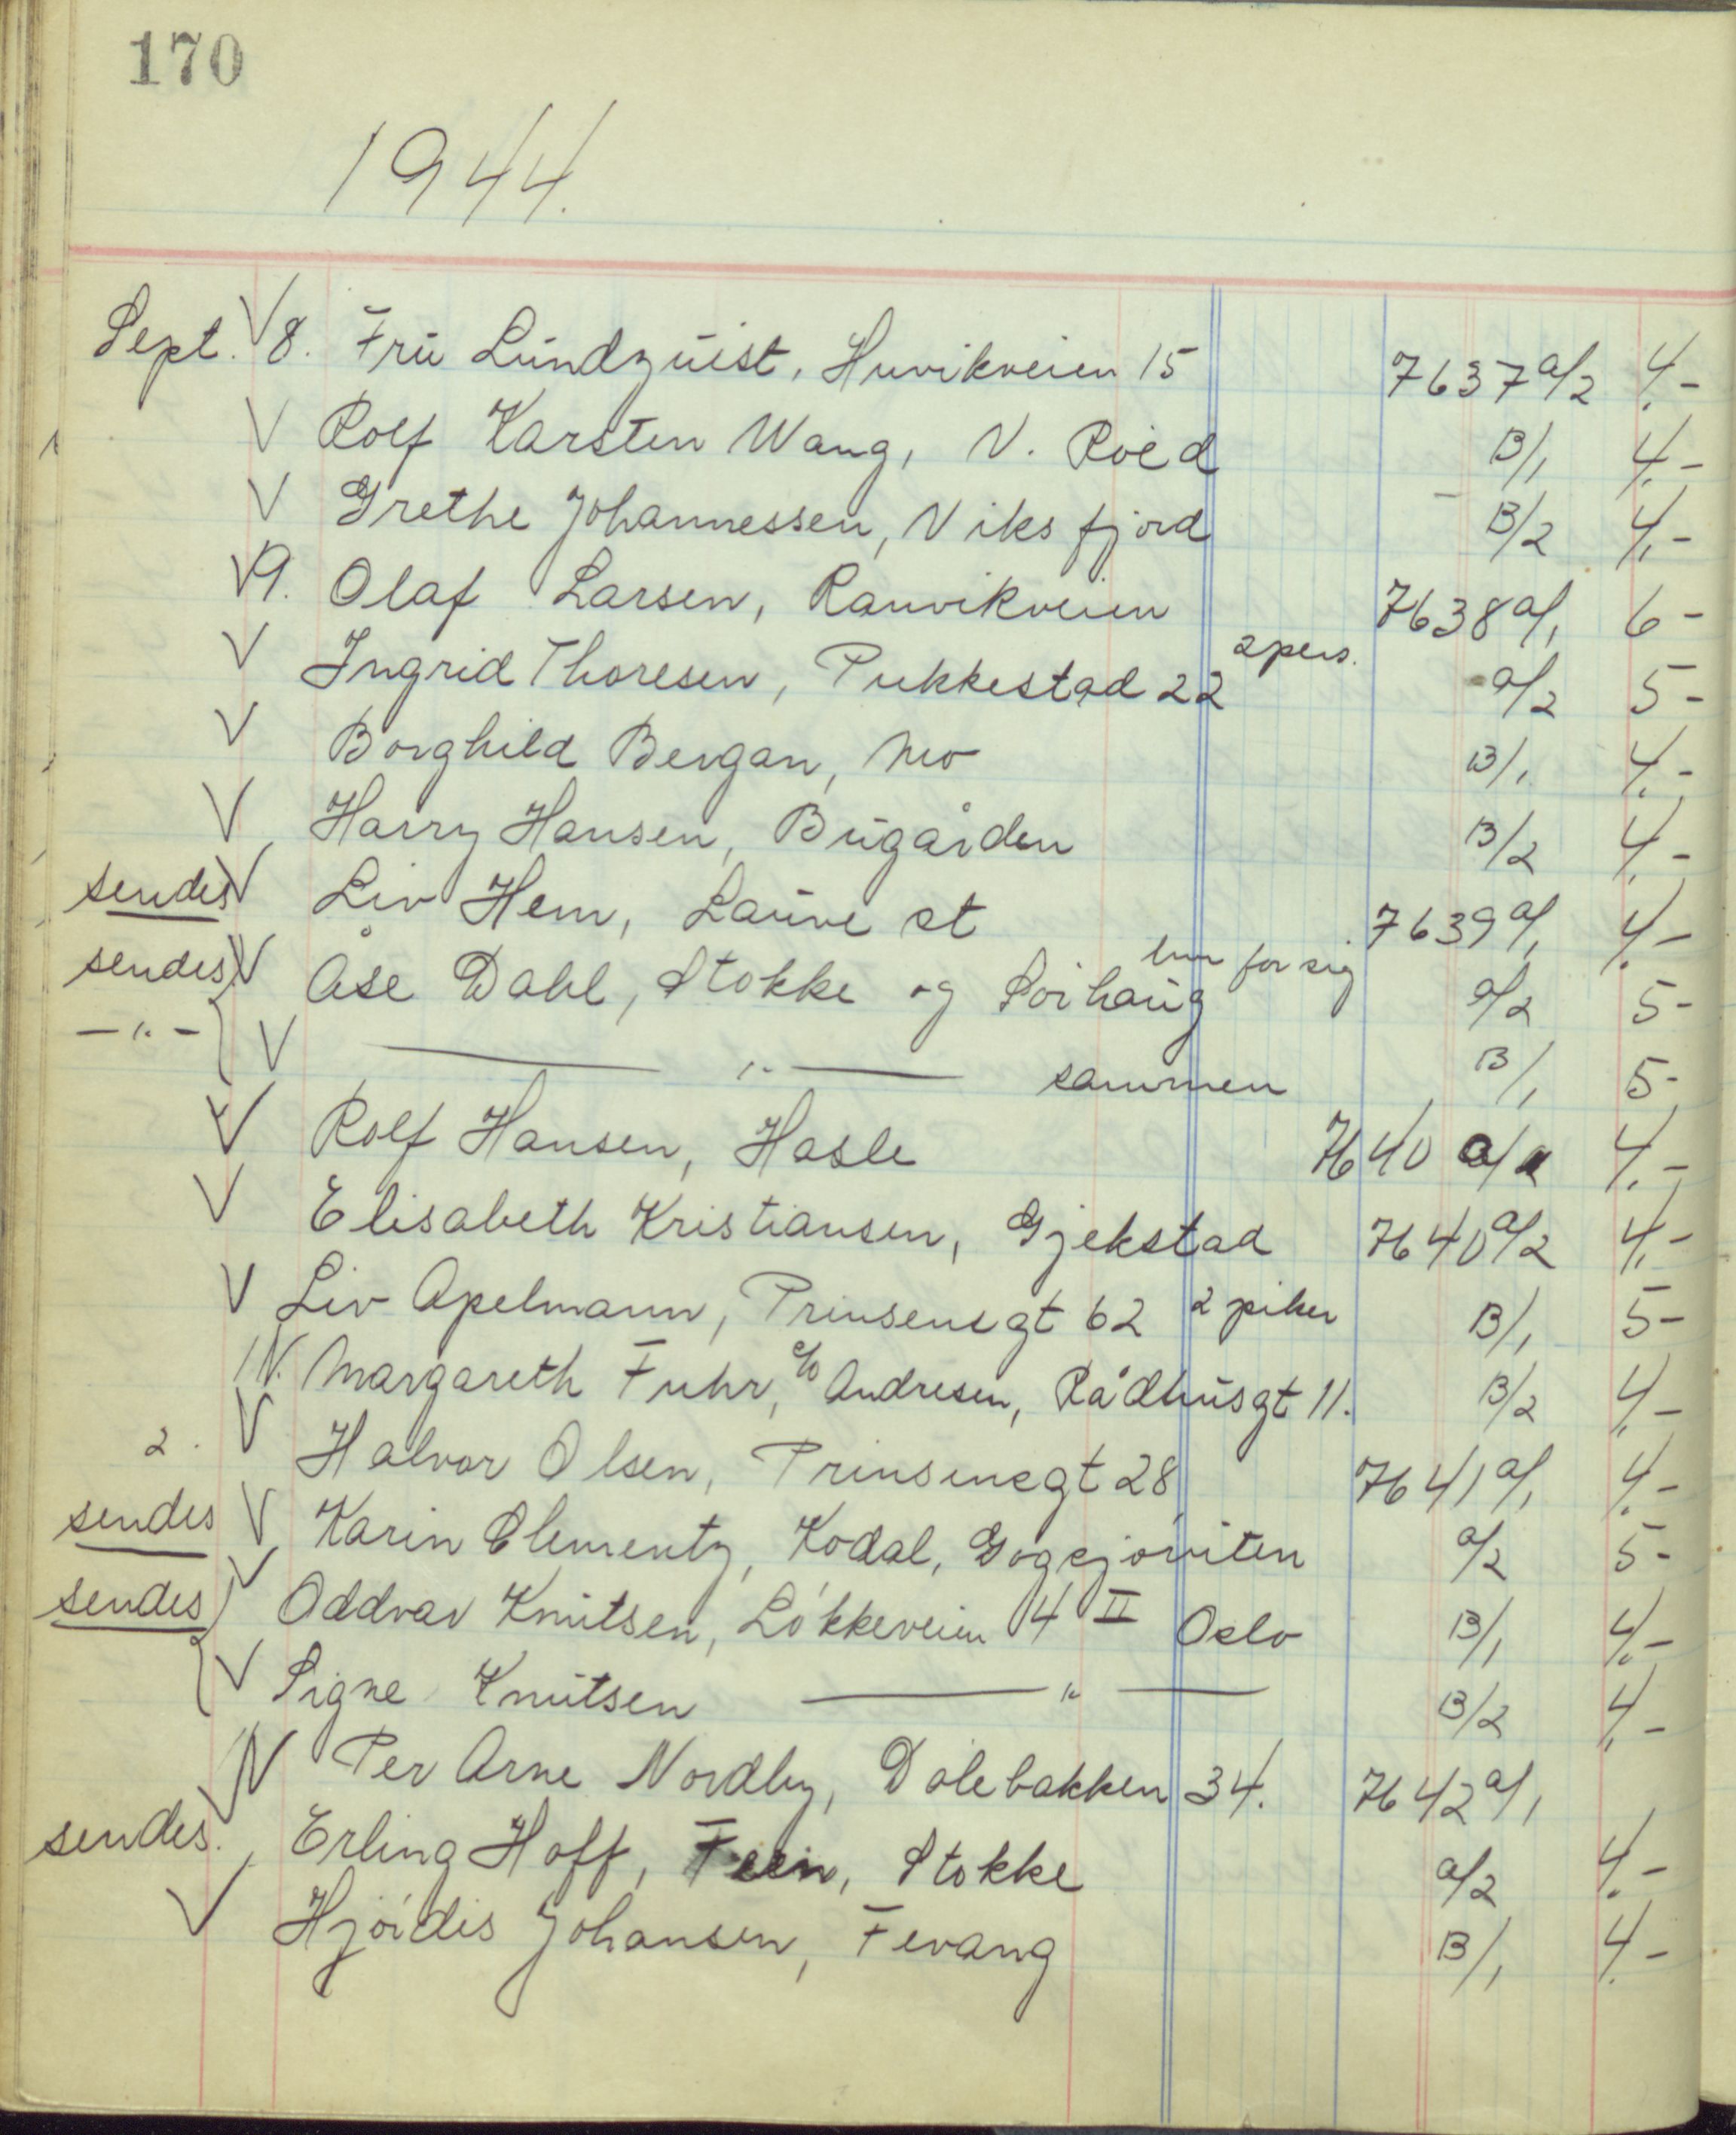 170
1944.
Sept. V 8. Fru Lundquist, Huvikveien 15 7637 a/2 4.-
V Rolf Karsten Wang, V. Röed B/1 4.-
V Grethe Johannessen, Viksfjord - B/2 4.-
V 9. Olaf Larsen, Ranvikveien 7638 a/1 6-
V Ingrid Thoresen, Pukkestad 22 2 pers. a/2 5-
V Borghild Bergan, Mo B/1 4.-
V Harry Hansen, Bugården B/2 4.-
sendes V Liv Hem, Lauve st 7639 a/1 4.-
sendes V Åse Dahl, Stokke og Söihaug hver for sig a/2 5-
-"- V —— " —— sammen B/1 5-
V Rolf Hansen, Hasle 7640 a/1 4.-
V Elisabeth Kristiansen, Gjekstad 7640 a/2 4.-
V Liv Apelmann, Prinsensgt 62 2 piker B/1 5-
11. V Margareth Fuhr, c/o Andresen, Rådhusgt 11. B/2 4.-
2. V Halvor Olsen, Prinsensgt 28 7641 a/1 4.-
sendes V Karin Clementz, Kodal, a/2 5-
sendes V Oddvar Knutsen, Lökkeveien 4 II Oslo B/1 4.-
V Signe Knutsen —— " —— B/2 4.-
V Per Arne Nordby, Dölebakken 34. 7642 a/1
sendes. V Erling Hoff, Feen, Stokke a/2 4.-
V Hjördis Johansen, Fevang B/1 4.-